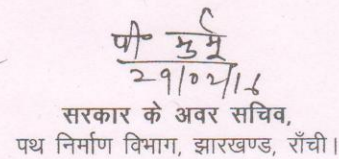 पी० मुर्मू
29/02/16
सरकार के अवर सचिव,
पथ निर्माण विभाग, झारखण्ड, राँची।